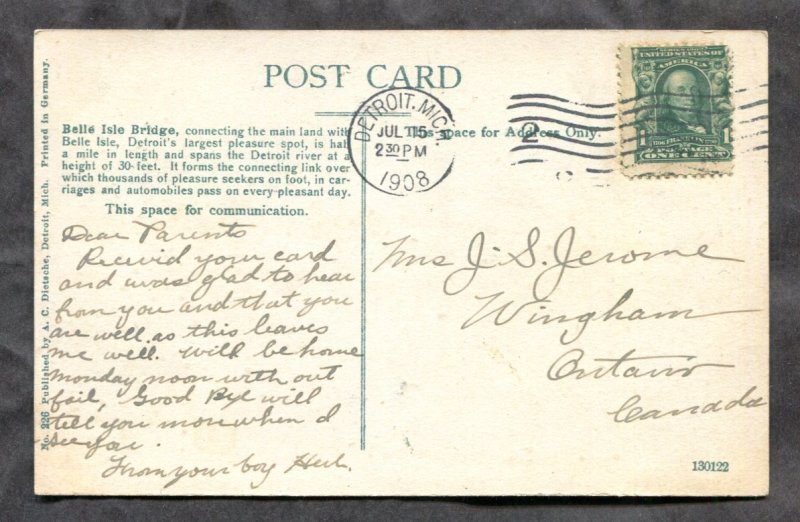 POST CARD
Belle Isle Bridge, connecting the main land with
Belle Isle, Detroit's largest pleasure spot, is half
a mile in length and spans the Detroit river at a
height of 30-feet. It forms the connecting link over
which thousands of pleasure seekers on foot, in car-
riages and automobiles pass on every pleasant day.
This space for communication.
Dear Parents
Received your card
and was glad to hear
from you and that you
are well. as this leaves
me well. Will be home
monday noon with out
fail, Good Bye will
tell you more when I
see you.
From your boy Herb.
No. 226 Published by A. C. Dietsche, Detroit, Mich. Printed in Germany.
DETROIT, MICH.
JUL 15
2 30 PM
1908
2
This space for Address Only.
SERIES 1902
UNITED STATES OF
AMERICA
1 1
FRANKLIN
POSTAGE
ONE CENT
Mrs J. S. Jerome
Wingham
Ontario
Canada
130122